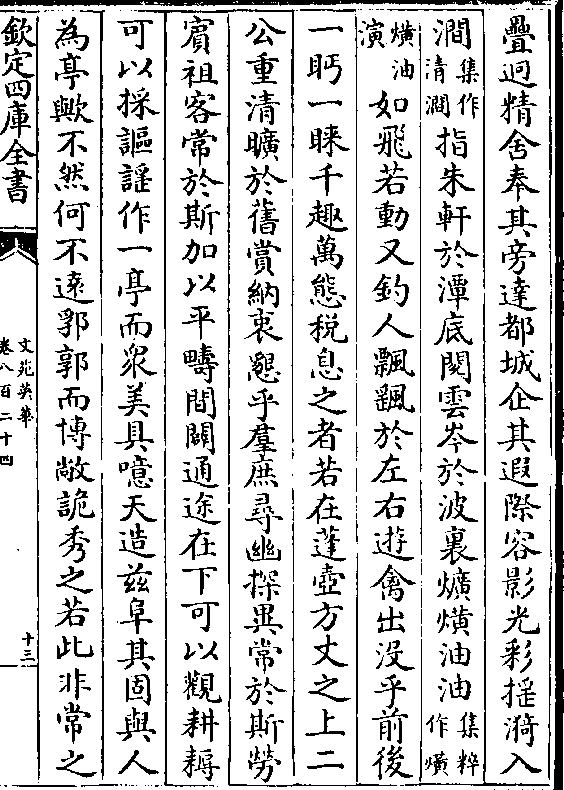 疊迥精舍奉其旁達都城企其遐際容影光彩揺漪入
澗集作清澗指朱軒於潭底閱雲岑於波裏爌熿油油集粹作熿
熿油演如飛若動又釣人飄颻於左右遊禽出没乎前後
一眄一睞千趣萬態税息之者若在蓬壺方丈之上二
公重清曠於舊賞納衷懇乎羣庶尋幽探異常於斯勞
賔祖客常於斯加以平疇間闢通途在下可以觀耕耨
可以採謳謡作一亭而衆美具噫天造兹阜其固與人
為亭歟不然何不遠郛郭而博敞詭秀之若此非常之
欽定四庫全書
文苑英華
卷八百二十四
十三